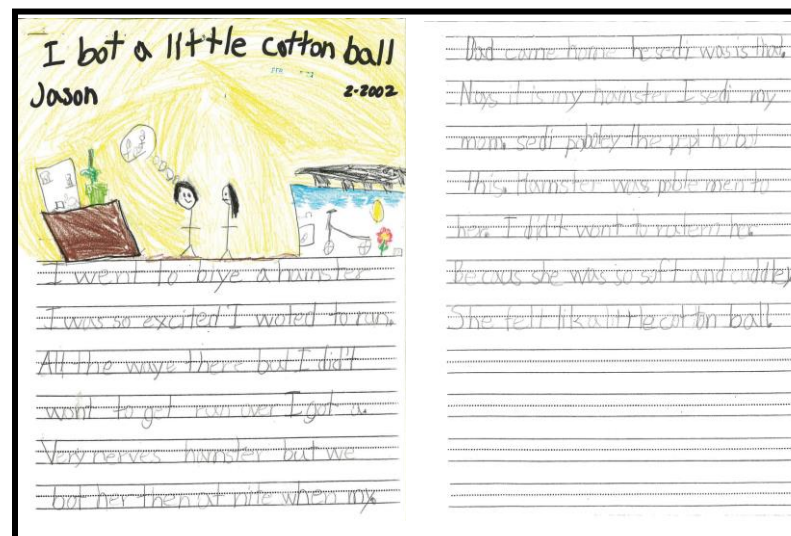 I bot a little cotton ball
Jason 2-2002
I went to biye a hamster
I was so excited I woted to run.
All the waye there but I did't
woht to get run over I got a.
Very nerves hamster but we
bot her then at nite when my
Dad came home he sedi was is that.
Nays it is my hamster I sedi my
mom. sedi the ho bot
this. Hamster was men to
her. I did't wont to her.
Becaus she was so soft and cuddley
She felt lik a little cotton ball.